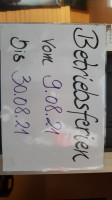 Betriebsferien
vom 9.08.21
bis 30.08.21